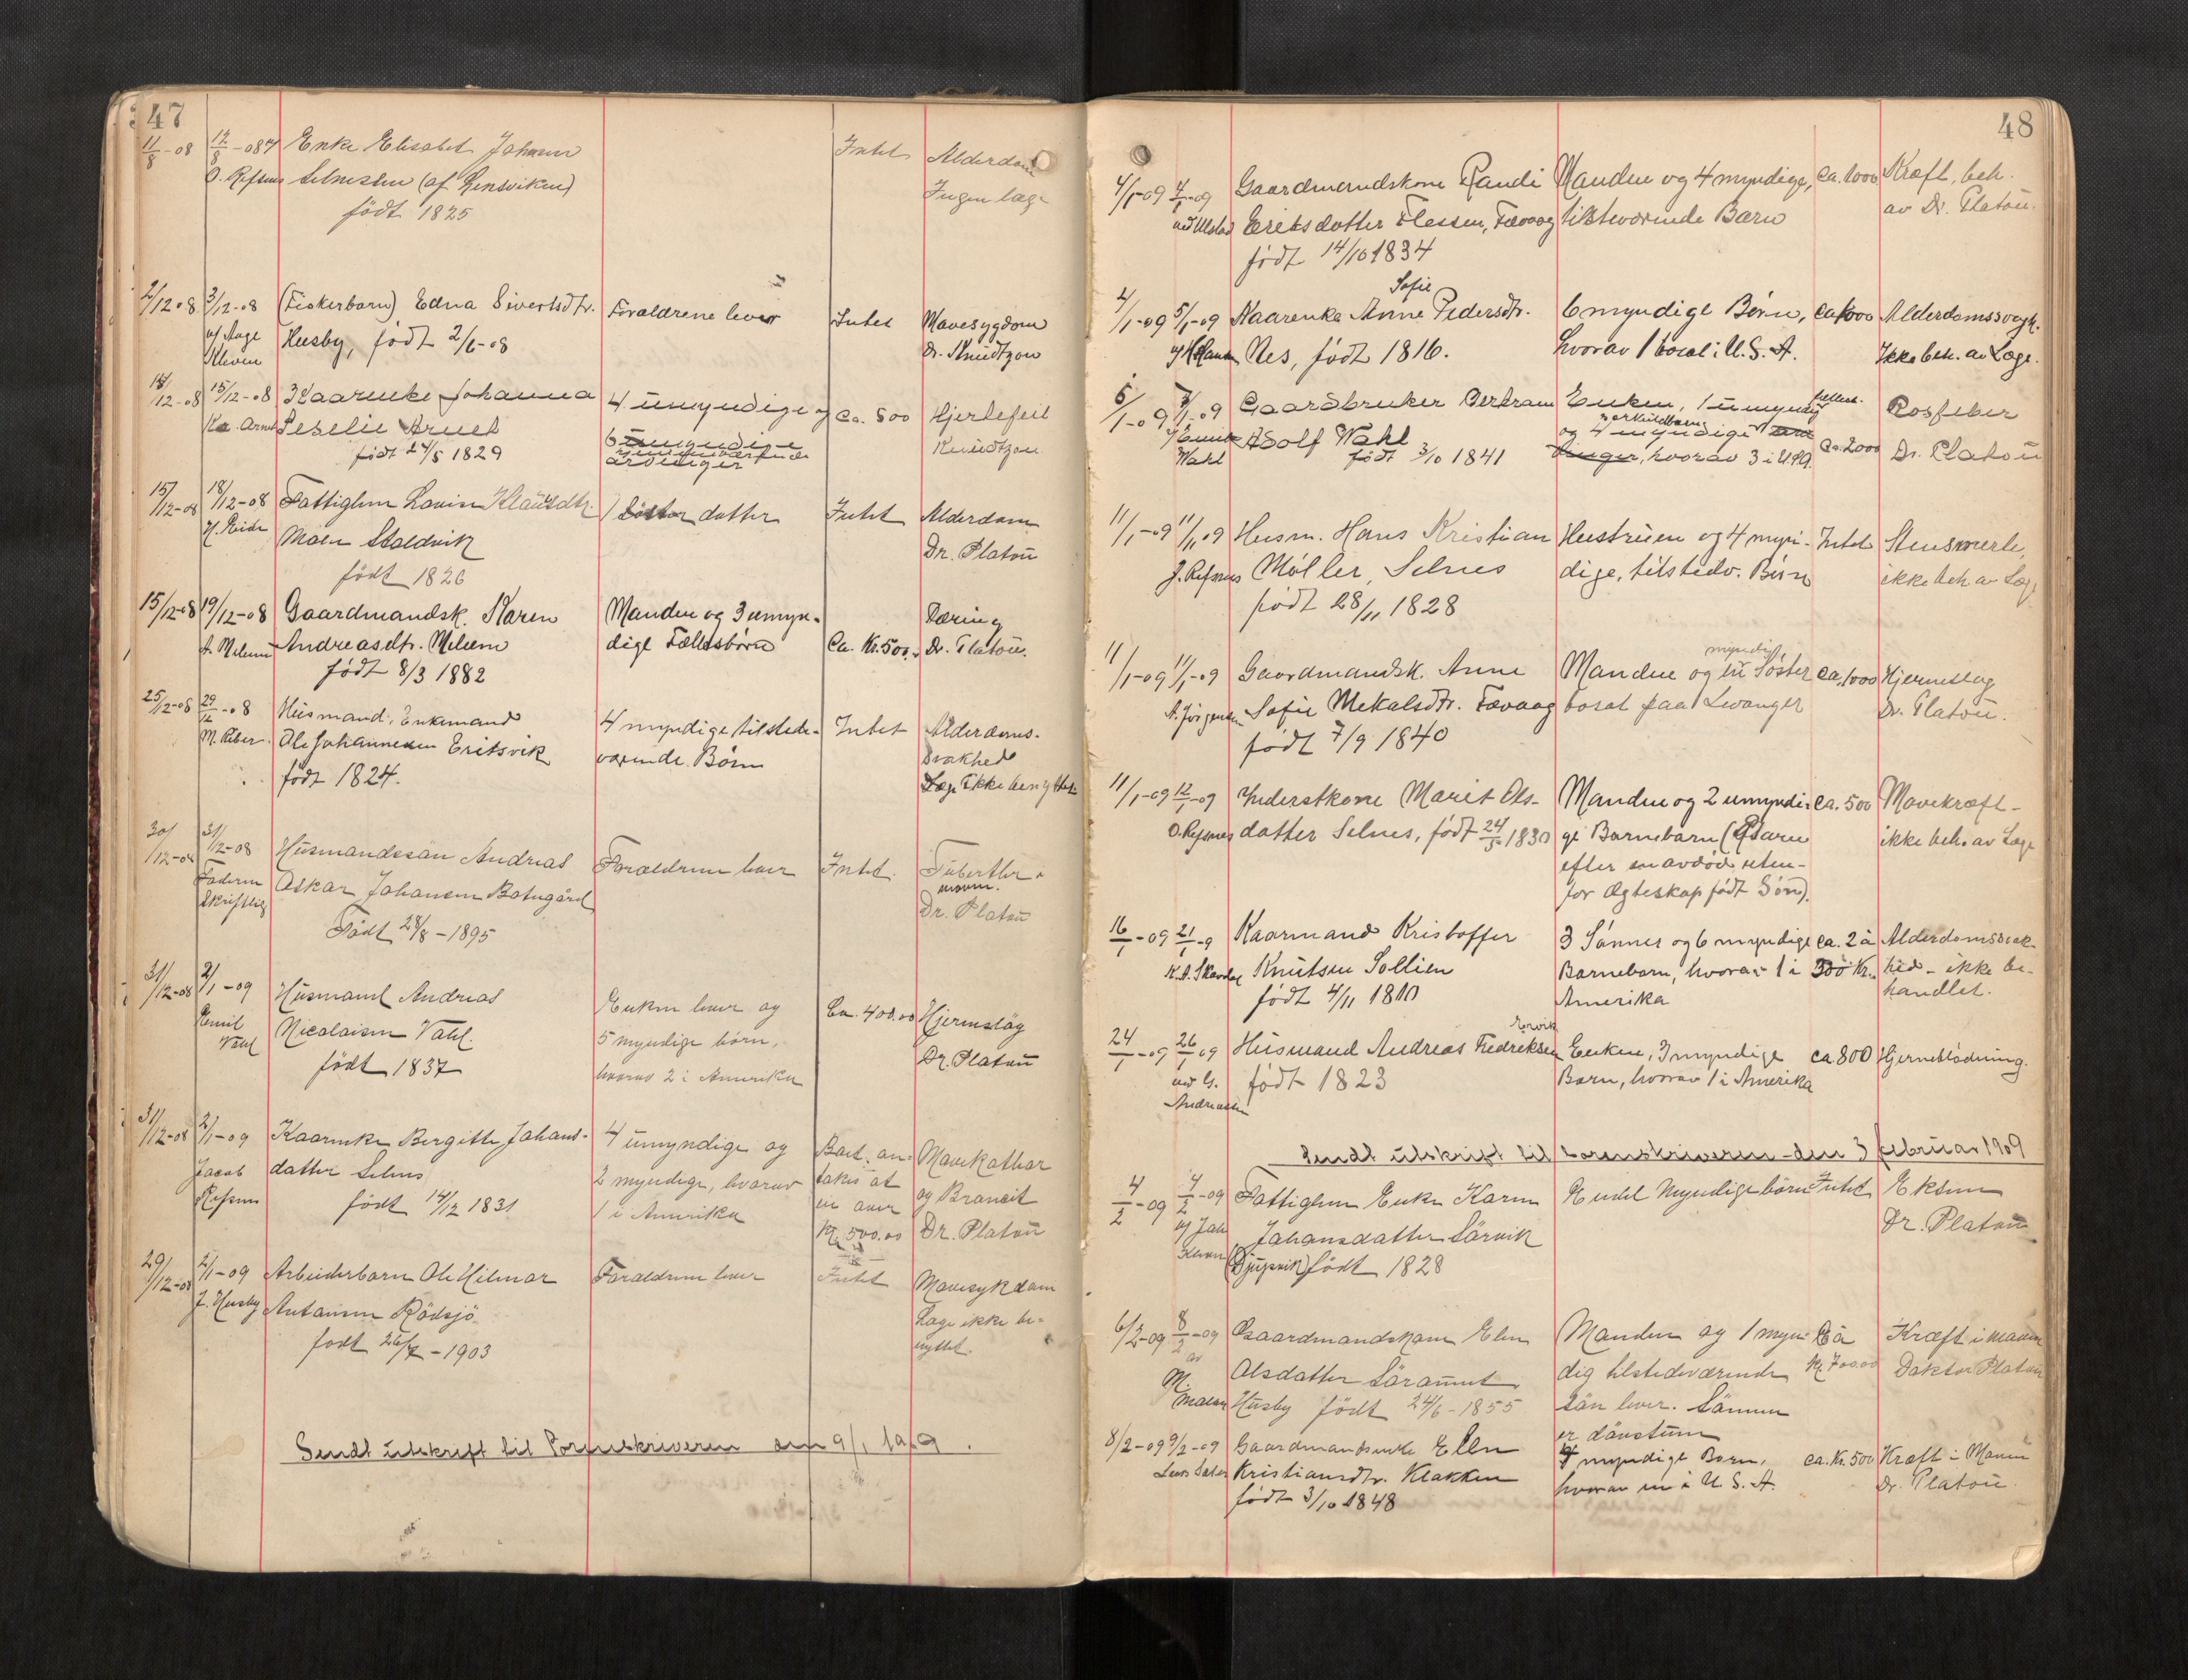 47
11/8-08 12/8-08 Enke Elisabet Johann Intet Alderdom
O. Refsnes Selnesten (af Rensviken) Ingen læge
født 1825
2/12 08 3/12-08 (Fiskerbarn) Edna Sivertsdtr. Foraldrene lever Intet Mavesygdom
af Aage Husby, født 2/6-08 Dr. Knudtzon
12-08 15/12-08 Kaarenke Johanna 4 umyndige og Ca. 500 Hjertefeil
født 24/5 1829 Knudtzon
arvinger
15/12-08 18/12-08 Fattiglem Lovise Klausdtr. 1 datter Intet Alderdom
Moen Staldvik Dr. Platou
født 1826
15/12-08 19/12-08 Gaardmandsk. Karen Manden og 3 umyn-
A. Melum Andreasdtr. Melum dige Fellesbörn Ca. Kr. 500. Dr. Platou.
født 8/3 1882
25/12-08 29/12-08 Husmand, Enkemand 4 myndige tilstede- Intet Alderdoms-
M. Riber Ole Johannesen Eritsvik værende Börn svakhed
født 1824. Læge ikke benyttet
30/12-08 31/12-08 Husmandssön Andreas Foraldrene lever Intet. Tuberkler
Faderen Oskar Johansen Botngård
skriftlig Dr. Platou
Født 28/8-1895
31/12-08 2/1-09 Husmand Andreas Enken lever og Ca. 400.00 Hjerneslag
Emil Nicolaisen Vahl. 5 myndige börn,
Vahl Dr. Platou
født 1837 hvorav 2 i Amerika
31/12-08 2/1-09 Kaarenke Bergitte Johans- 4 umyndige og Boet an- Mavekathar
Jacob datter Selnes 2 myndige, hvorav takes at og Brancit
Refsnes født 14/12 1831 1 i Amerika
Kr. 500.00 Dr. Platou
29/12-08 2/1-09 Arbeiderbarn Ole Hilmar Foraldrene lever Intet Mavesykdom
J. Husby Antonsen Rödsjö Læge ikke be-
født 26/7-1903 nyttet.
Sendt utskrift til Sorenskriveren den 9/1 1909.
48
4/1-09 7/1-09 Gaardmandskone Randi Manden og 4 myndige, ca. 1000 Kræft, beh.
Eriksdatter Flessen, Fævaag tilstværende Barn av Dr. Platou.
født 14/10 1834
Sofie
4/1-09 5/1-09 Kaarenke Anne Pedersdtr. 6 myndige Börn, ca 1000 Alderdomssvagh.
Nes, født 1816. hvorav 1 bosat i U.S.A. Ikke beh. av Læge.
6/1-09 8/1-09 Gaardbruker Bertram Enken, 1 umyndig Rosfeber
Emil Adolf Wahl og 4 myndige
Wahl født 3/10 1841 hvorav 3 i U.S.A. Ca. 2000 Dr. Platou
11/1-09 11/1 09 Husm. Hans Kristian Hustruen og 4 myn- Intet
J. Refsnes Möller, Selnes dige, tilstedv. Börn ikke beh av Læge
født 28/11 1828
myndig
11/1-09 11/1-09 Gaardmandsk. Anne Manden og en Söster ca. 1000 Hjerneslag
A. Jörgensen Sofie Mekalsdtr. Fævaag bosat paa Levanger Dr. Platou.
født 7/9 1840
11/1-09 12/1-09 Inderstkone Marit Ols- Manden og 2 umyndi- ca. 500 Mavekræft-
O. Refsnes datter Selnes, født 24/5 1830 ge Barnebarn ikke beh. av Læge
efter en avdöd uten-
for Ægteskap født Sön).
16/1-09 21/1-9 Kaarmand Kristoffer 3 Sönner og 6 myndige ca. 2 à Alderdomssvak-
Knutsen Sollien Barnebarn, hvorav 1 i 300 Kr. hed - ikke be-
født 4/11 1810 Amerika handlet.
24/1-09 26/1 09 Husmand Andreas Fredriksen Enken, 3 myndige ca 800 Hjerneblödning.
ved G. født 1823 Barn, hvorav 1 i Amerika
Andreassen
Sendt utskrift til Sorenskriveren den 3 februar 1909
4/2-09 7/2-09 Fattiglem Enke Karen Endel Myndige börn Intet Eksem
Johansdatter Sörvik Dr. Platou
født 1828
6/2-09 8/2-09 Gaardmandskone Elen Manden og 1 myn- Ca Kræft i maven
av Olsdatter dig tilstedeværende Kr. 700.00 Doktor Platou
M. Husby født 24/6-1855 Sön lever. Sönnen
er dövstum
8/2-09 9/2-09 Gaardmandsenke Ellen 4 myndige Barn, ca. Kr. 500 Kræft i Maven
Kristiansdtr. Klakken hvorav en i U.S.A. Dr. Platou
født 3/10 1848